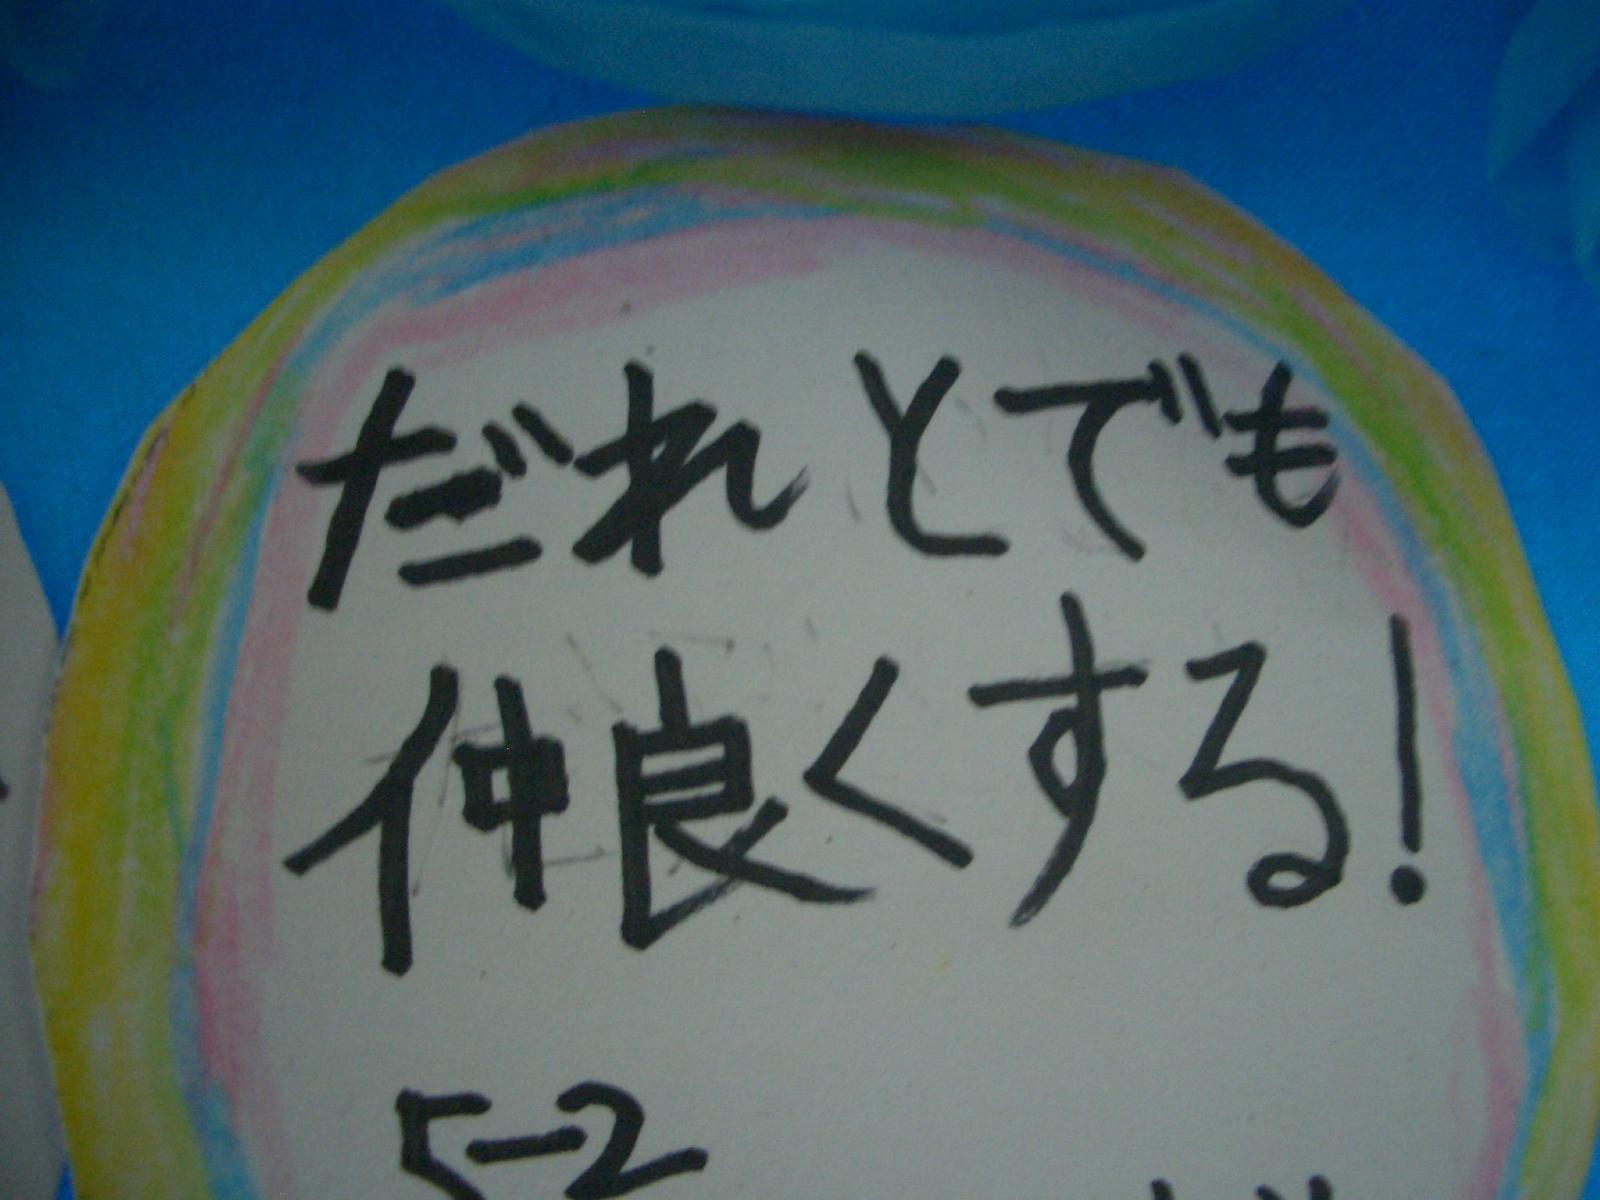 だれとでも
仲良くする!
5-2